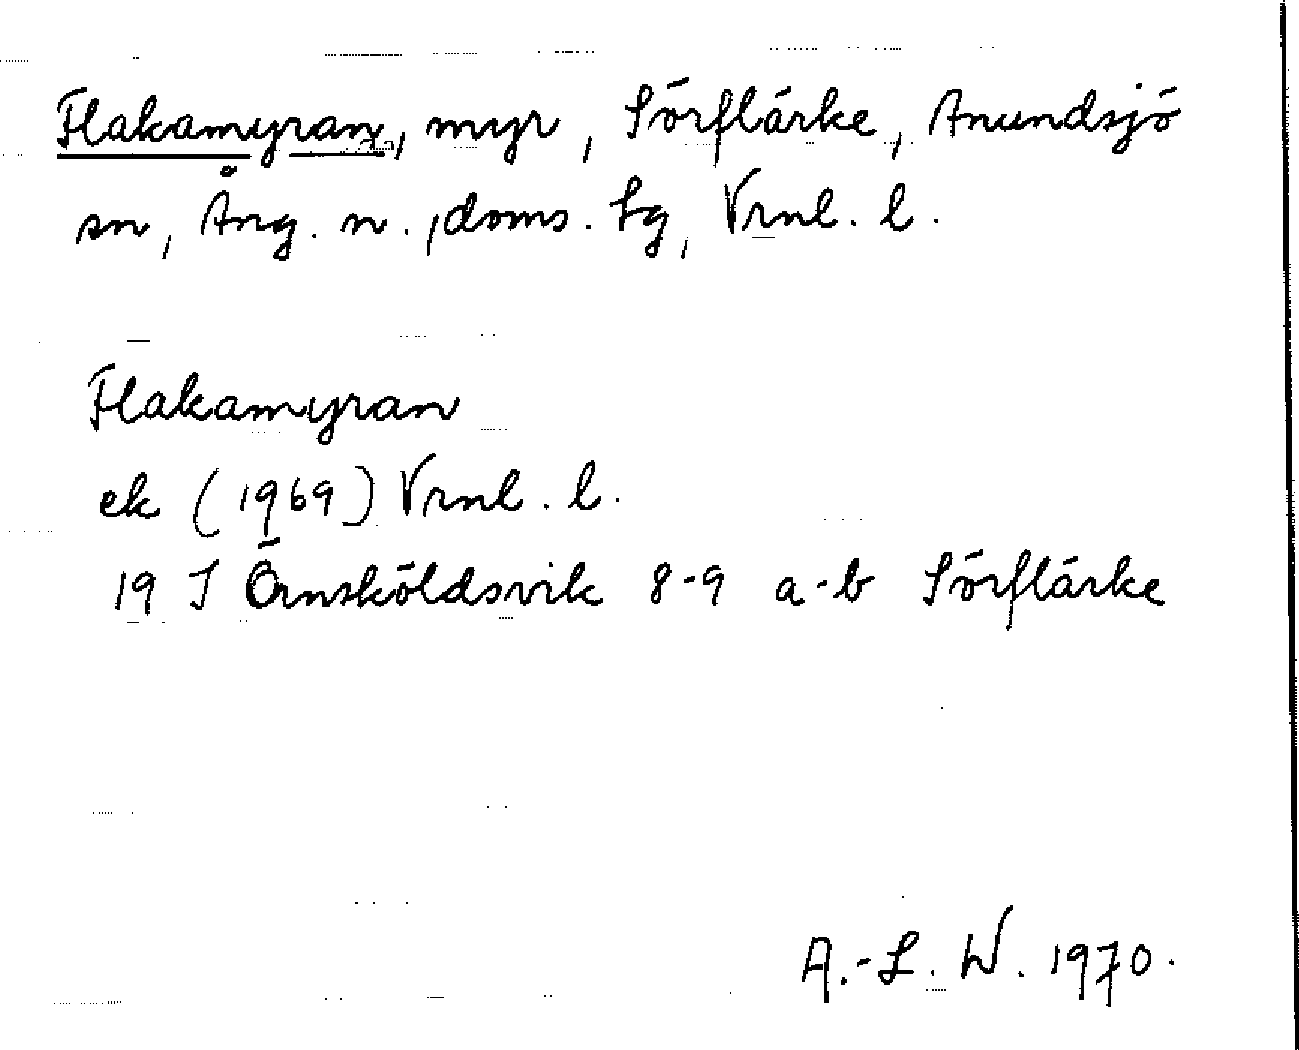 Flakamyran, myr, Sörflärke, Anundsjö
sn, Ång. n., doms. lg, Vrnl. l.
Flakamyran
ek (1969) Vrnl. l.
19 J Örnsköldsvik 8-9 a-b Sörflärke
A.-L. W. 1970.